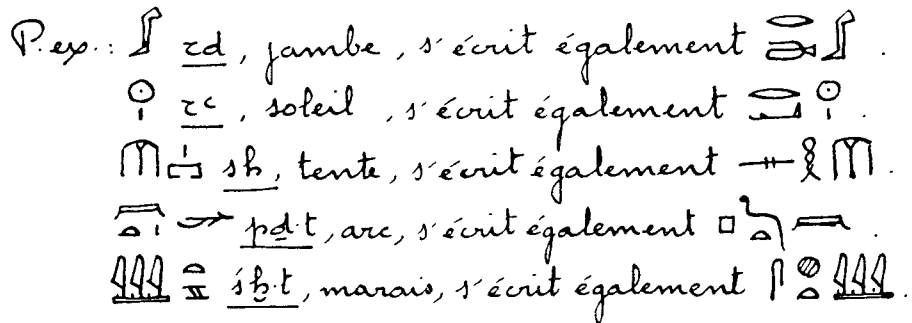 P. ex. : 𓂾 rd, jambe, s'écrit également 𓂋𓂧𓂾.
𓇳𓏤 rc, soleil, s'écrit également 𓂋𓂝𓇳𓏤.
sḥ, tente, s'écrit également 𓊃𓎛.
pḏ·t, arc, s'écrit également 𓊪𓆓𓏏.
𓇏 śḫ·t, marais, s'écrit également 𓋴𓐍𓏏𓇏.